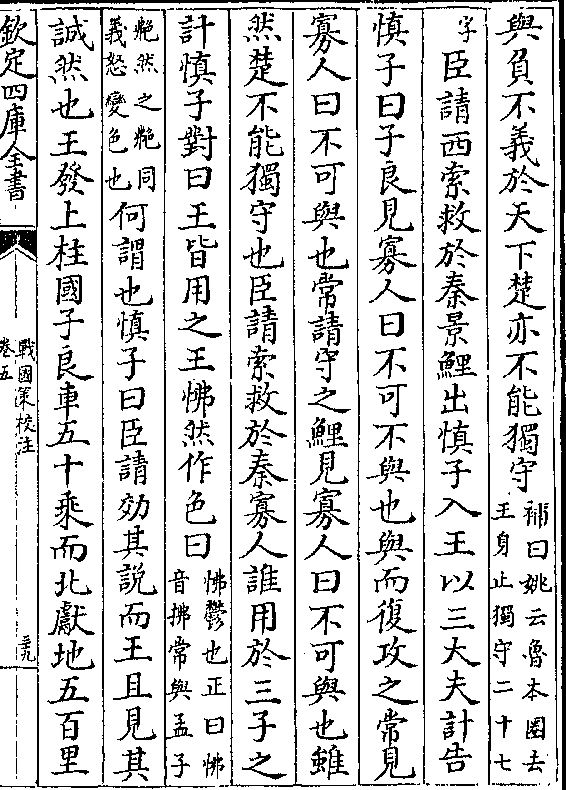 與負不義於天下楚亦不能獨守補曰姚云魯本圈去王身止獨守二十七
字臣請西索救於秦景鯉出慎子入王以三大夫計告
慎子曰子良見寡人曰不可不與也與而復攻之常見
寡人曰不可與也常請守之鯉見寡人曰不可與也雖
然楚不能獨守也臣請索救於秦寡人誰用於三子之
計慎子對曰王皆用之王怫然作色曰怫鬱也正曰怫音拂常與孟子
艴然之艴同義怒變色也何謂也慎子曰臣請効其說而王且見其
誠然也王發上柱國子良車五十乘而北獻地五百里
欽定四庫全書
戰國策校注
卷五
三九